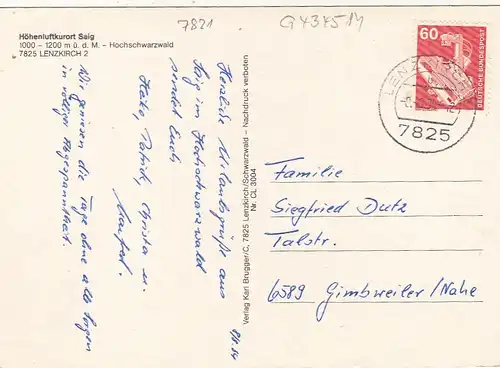 7821
G 434514
Höhenluftkurort Saig
1000 – 1200 m ü. d. M. – Hochschwarzwald
7825 LENZKIRCH 2
Herzliche Urlaubsgrüße aus
Saig im Hochschwarzwald
sendet Euch
Käte, Patrick, Christa u.
Manfred.
Wir genießen die Tage ohne alle Sorgen
in völliger Abgespanntheit.
Verlag Karl Brugger/C, 7825 Lenzkirch/Schwarzwald – Nachdruck verboten
Nr. CL 3004
60
DEUTSCHE BUNDESPOST
LENZKIRCH
7825
Familie
Siegfried Dutz
Talstr.
6589 Gimbweiler/Nahe